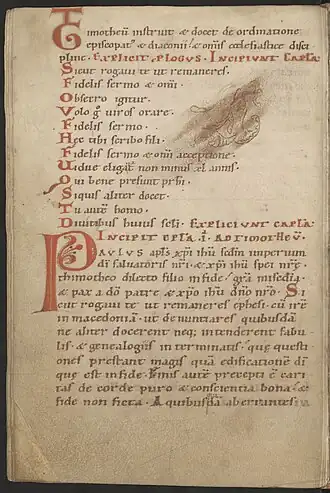 Timotheū instruit & docet de ordinatione
episcopat᷒ & diaconii & omīs ecclesiastice disci
pline. EXPLICIT PLOGUS. INCIPIUNT CAPLA.
Sicut rogavi te ut remaneres.
Fidelis sermo & omī.
Obsecro igitur.
Volo g̊ viros orare.
Fidelis sermo.
Hec tibi scribo fili.
Fidelis sermo & omī acceptione.
Vidue eligat̄ non minus lx annis.
Qui bene presunt prb̄i.
Siquis aliter docet.
Tu autē homo.
Divitibus huius sclī. EXPLICIUNT CAPLA.
INCIPIT EPLA .I. AD TIMOTHEŪ.
PAULUS apl̄s xp̄i ih̄u scdm̄ imperium
dī salvatoris nr̄i. & xp̄i ih̄u spei nr̄ę.
thimotheo dilecto filio infide. gr̄a mīsedia
& pax a dō patre & xp̄o ih̄u dn̄o nr̄o. Si
cut rogavi te ut remaneres ephesi cū irē
in macedoniā. ut denuntiares quibusdā
ne aliter docerent neq; intenderent fabu
lis & genealogiis interminatis. quę questi
ones prestant magis quā edificationē dī
quę est infide. Finis autē precepti ē cari
tas de corde puro & conscientia bona. &
fide non ficta. A quibusdā aberrantes